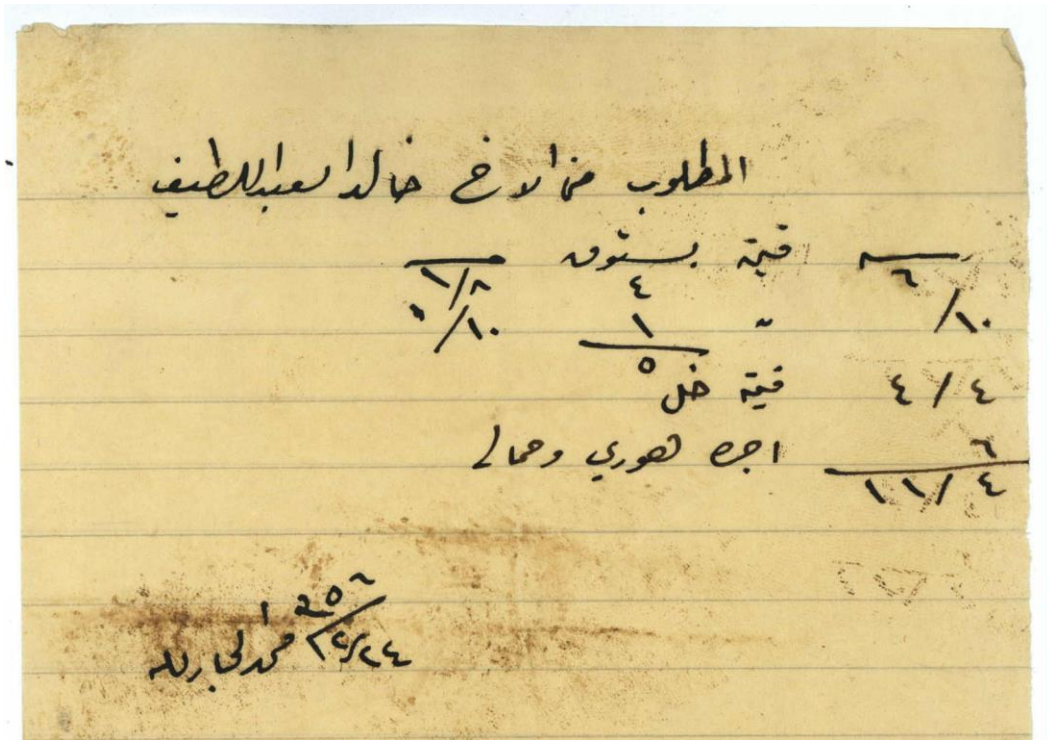 المطلوب من الاخ خالد العبد اللطيف
٦/١٠ قيمة بستوق ٤ ١/٨
" ١ ١/١٠
٥
٤/٤ قيمة خل
٦ اجرة هوري وحمالي
١١/٤
١٩٥٦/١٢/٢٤
محمد الجارالله